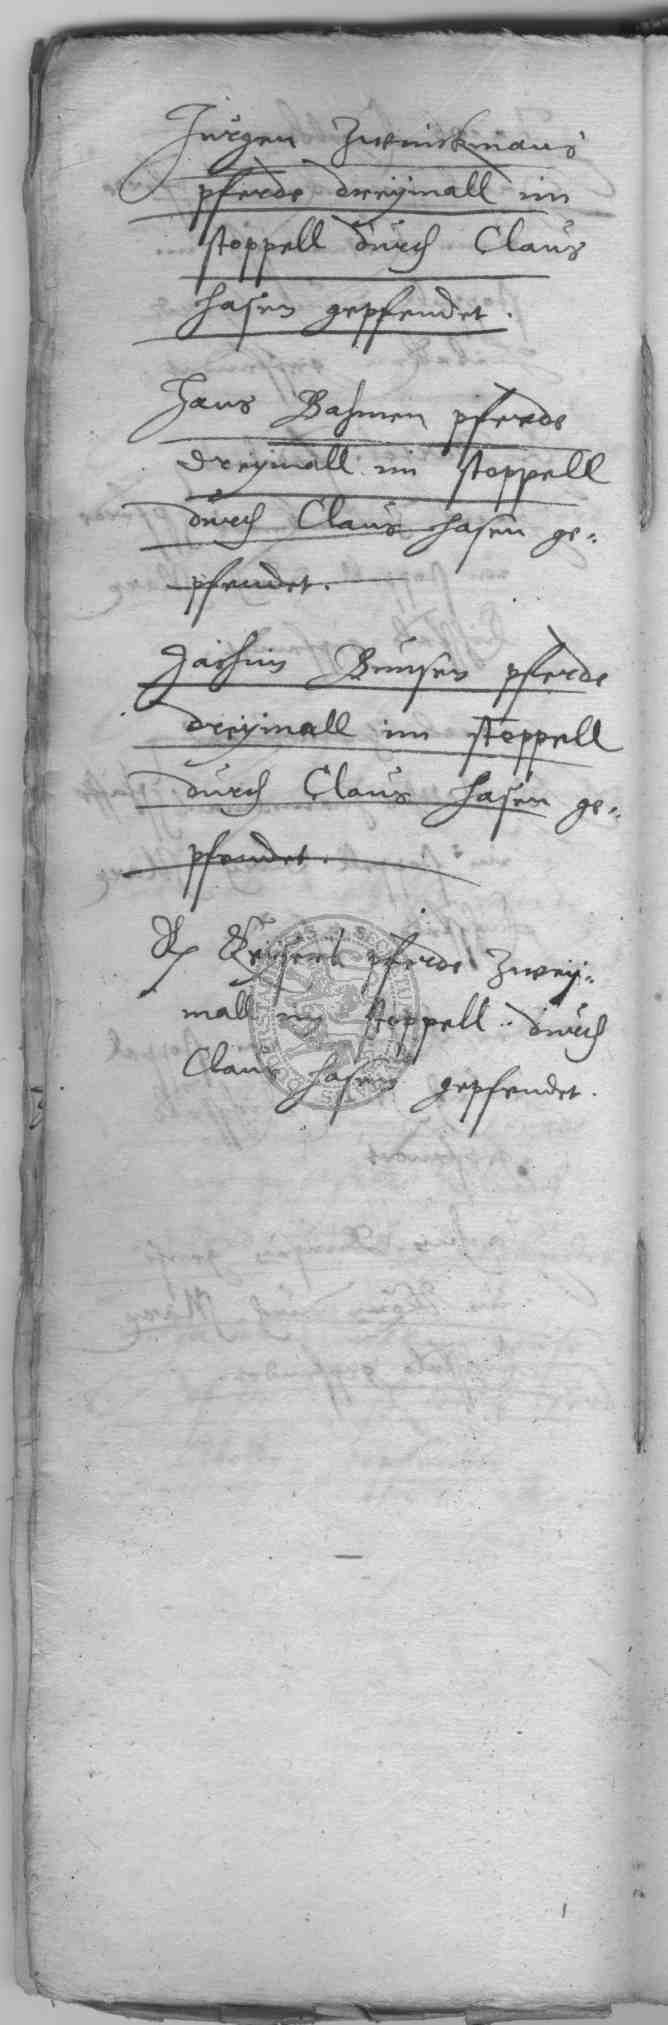 Jürgen Zwinckmans
pferde dreymall im
stoppell durch Claus
hasen gepfendet.
Hans Bahmen pferde
dreymall im stoppell
durch Claus hasen ge-
pfendet.
Jachim pferde
dreymall im stoppell
durch Claus hasen ge-
pfendet.
pferde zwey-
mall im stoppell durch
Claus hasen gepfendet.